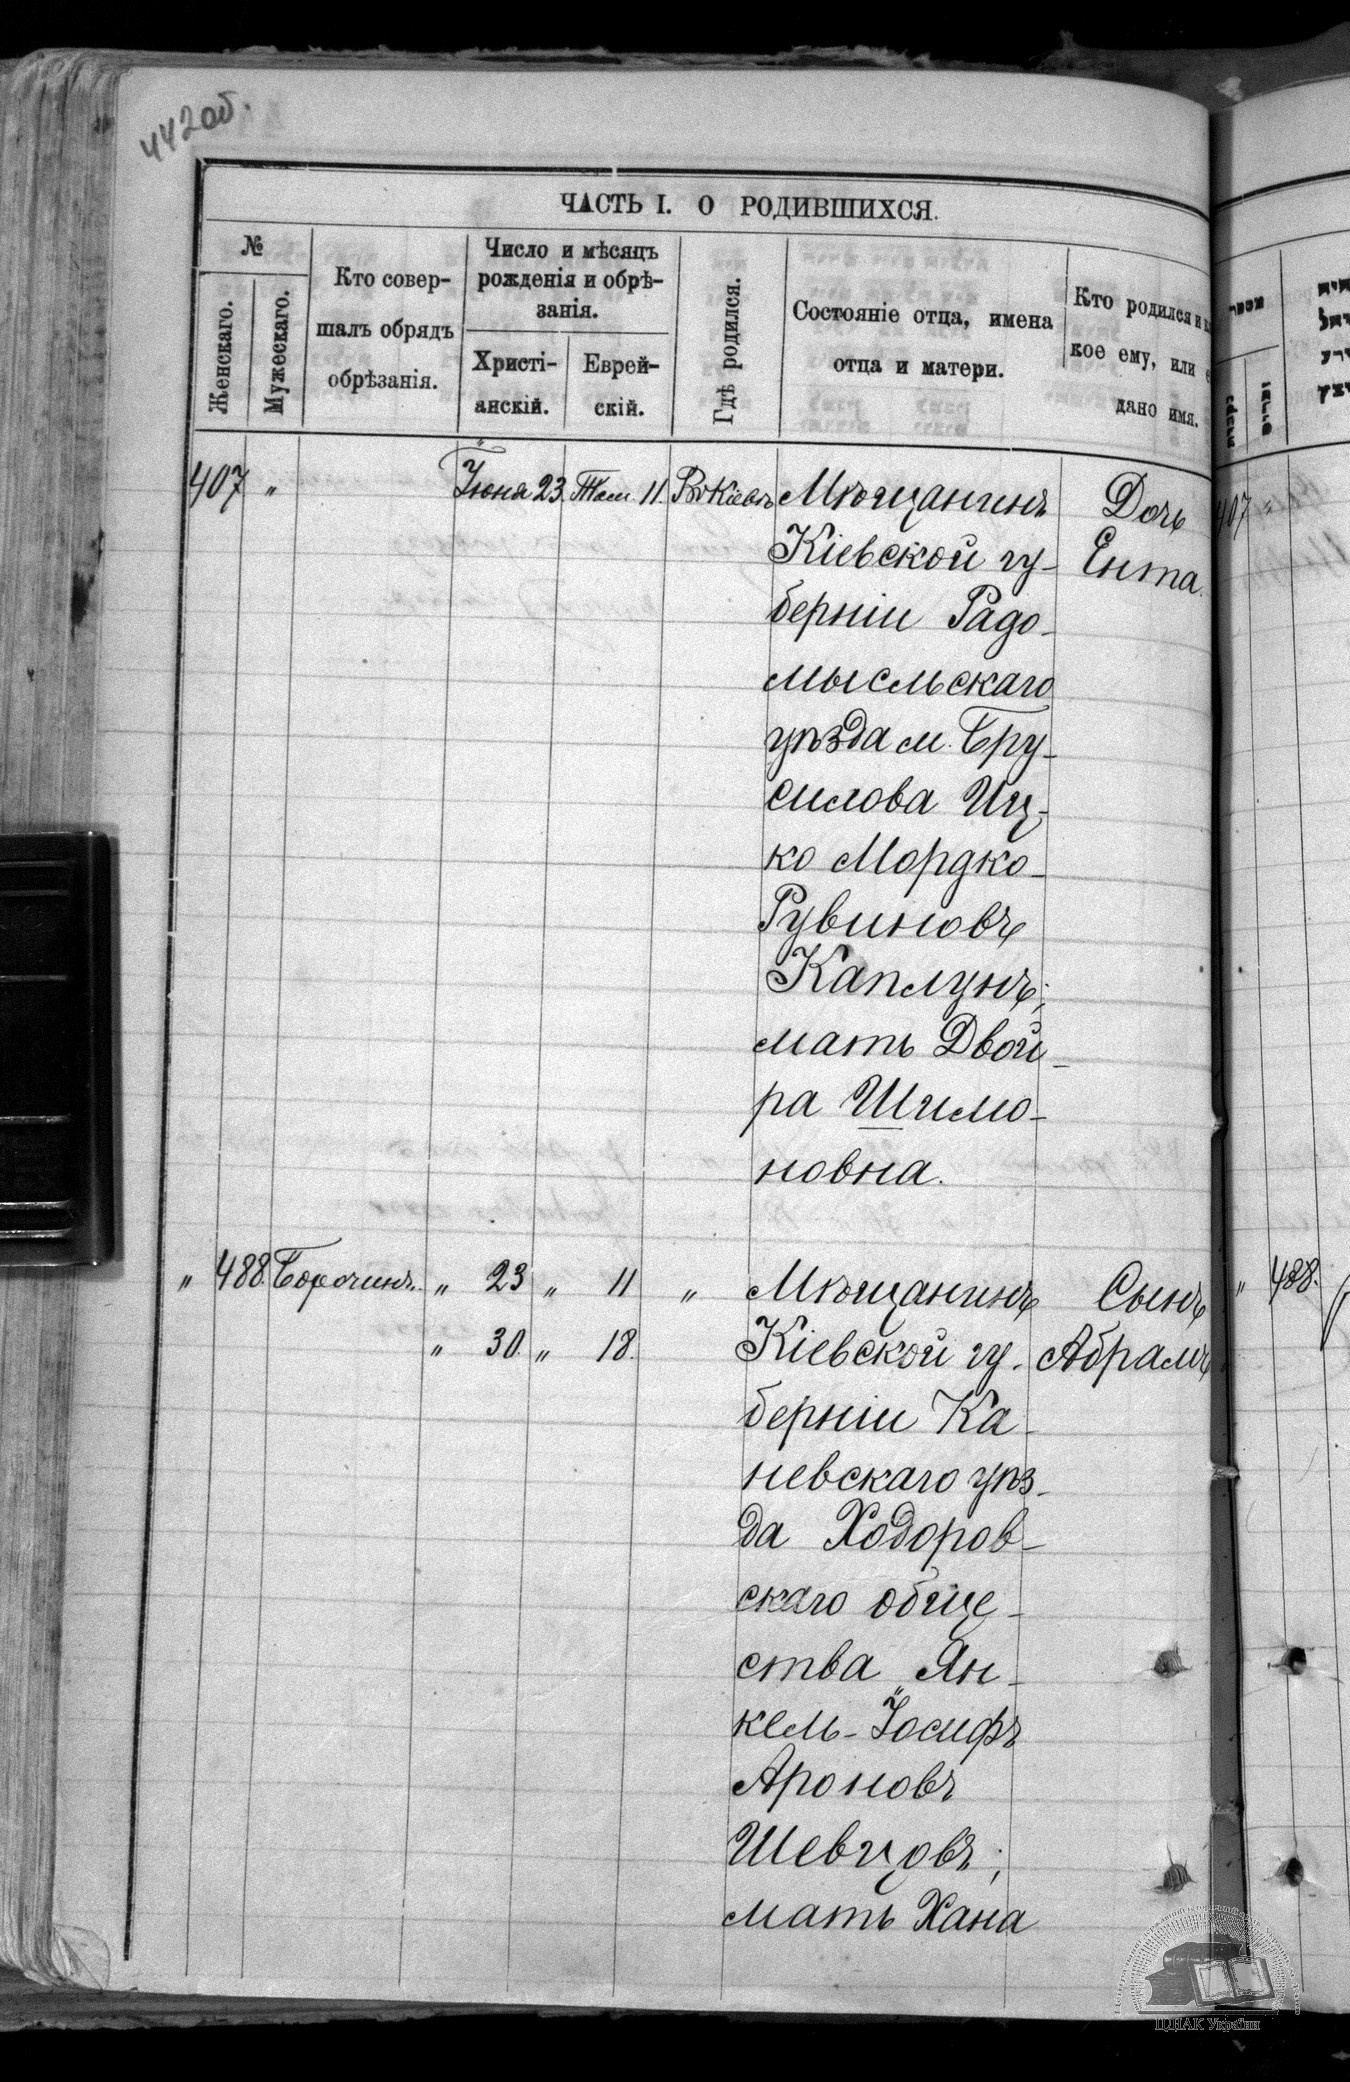 442об.
ЧАСТЬ I. О РОДИВШИХСЯ.
№
Женскаго.
Мужескаго.
Кто совер-
шалъ обрядъ
обрѣзанія.
Число и мѣсяцъ
рожденія и обрѣ-
занія.
Христі-
анскій.
Еврей-
скій.
Гдѣ родился.
Состояніе отца, имена
отца и матери.
Кто родился и
кое ему, или е
дано имя.
407 " Іюня 23. Там. 11. Въ Кіевѣ Мѣщанинъ Дочь
Кіевской гу- Ента.
берніи Радо-
мысльскаго
уѣзда м. Бру-
силова Иц-
ко Мордко-
Рувиновъ
Каплунъ;
мать Двой-
ра Шимо-
новна.
" 488. " 23 " 11 " Мѣщанинъ Сынъ
" 30. " 18. Кіевской гу- Абрамъ
берніи Ка-
невскаго уѣз-
да Ходоров-
скаго обще-
ства Ян-
кель-Іосифъ
Ароновъ
Шевцовъ;
мать Хана
407 "
" 488.
ЦДІАК України